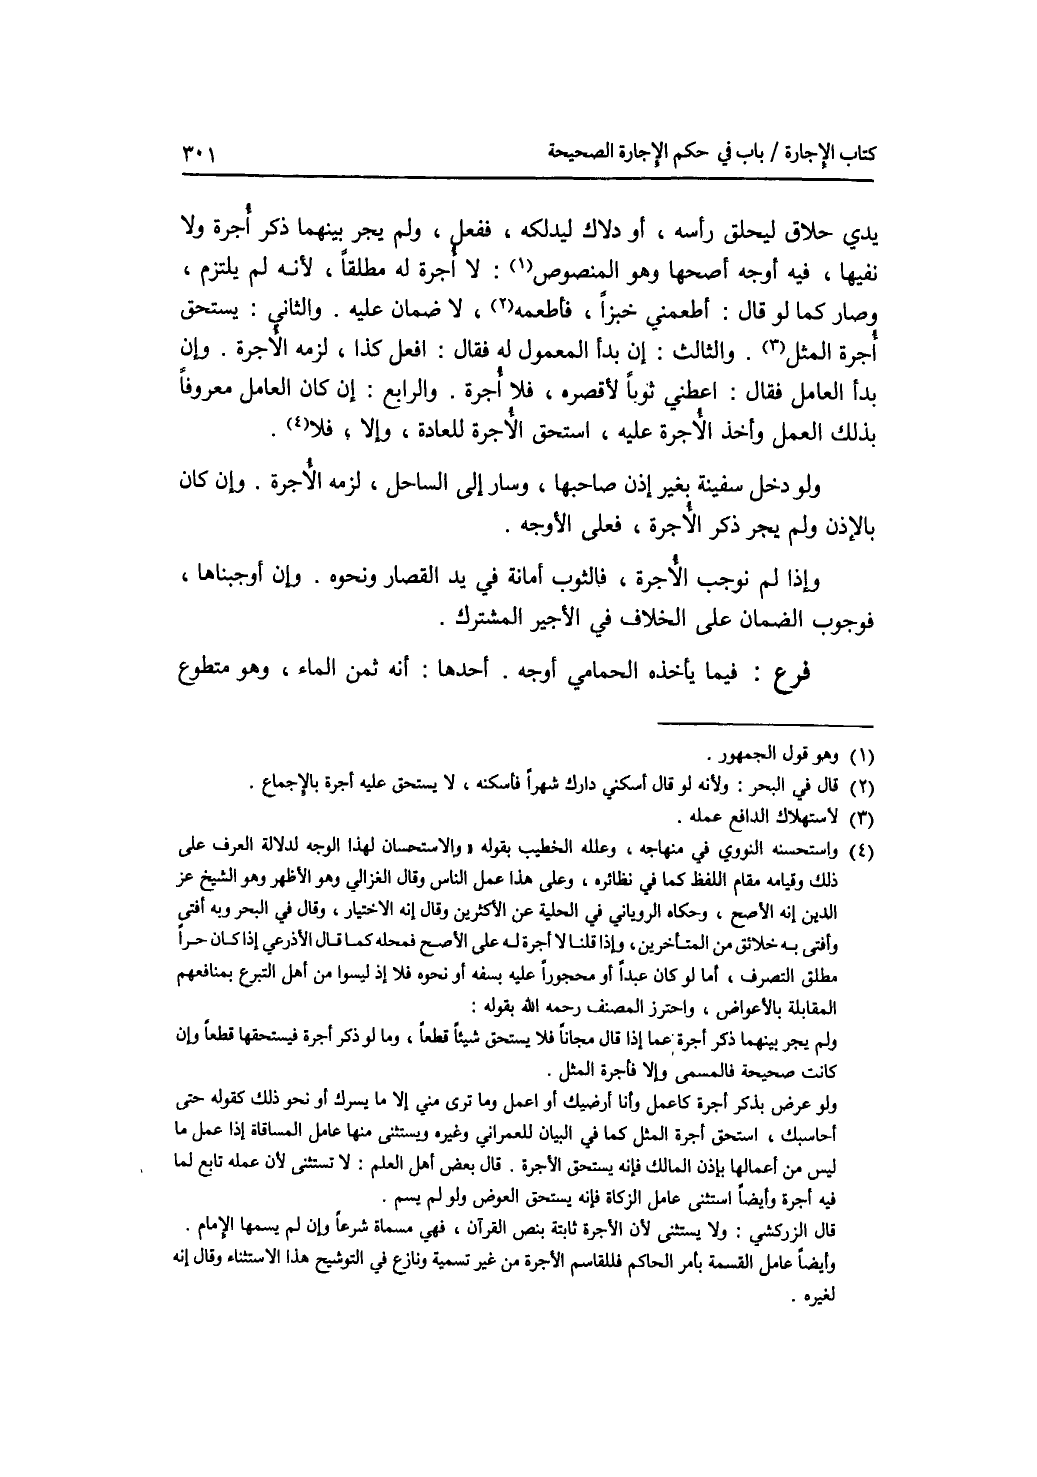 كتاب الإجارة / باب في حكم الإجارة الصحيحة ٣٠١
يدي حلاق ليحلق رأسه ، أو دلاك ليدلكه ، ففعل ، ولم يجر بينهما ذكر أُجرة ولا
نفيها ، فيه أوجه أصحها وهو المنصوص(١) : لا أُجرة له مطلقاً ، لأنه لم يلتزم ،
وصار كما لو قال : أطعمني خبزاً ، فأطعمه(٢) ، لا ضمان عليه . والثاني : يستحق
أُجرة المثل(٣) . والثالث : إن بدأ المعمول له فقال : افعل كذا ، لزمه الأُجرة . وإن
بدأ العامل فقال : اعطني ثوباً لأقصره ، فلا أُجرة . والرابع : إن كان العامل معروفاً
بذلك العمل وأخذ الأُجرة عليه ، استحق الأُجرة للعادة ، وإلا ، فلا(٤) .
ولو دخل سفينة بغير إذن صاحبها ، وسار إلى الساحل ، لزمه الأُجرة . وإن كان
بالإذن ولم يجر ذكر الأُجرة ، فعلى الأوجه .
وإذا لم نوجب الأُجرة ، فالثوب أمانة في يد القصار ونحوه . وإن أوجبناها ،
فوجوب الضمان على الخلاف في الأجير المشترك .
فرع : فيما يأخذه الحمامي أوجه . أحدها : أنه ثمن الماء ، وهو متطوع
(١) وهو قول الجمهور .
(٢) قال في البحر : ولأنه لو قال أسكني دارك شهراً فأسكنه ، لا يستحق عليه أجرة بالإجماع .
(٣) لاستهلاك الدافع عمله .
(٤) واستحسنه النووي في منهاجه ، وعلله الخطيب بقوله « والاستحسان لهذا الوجه لدلالة العرف على
ذلك وقيامه مقام اللفظ كما في نظائره ، وعلى هذا عمل الناس وقال الغزالي وهو الأظهر وهو الشيخ عز
الدين إنه الأصح ، وحكاه الروياني في الحلية عن الأكثرين وقال إنه الاختيار ، وقال في البحر وبه أفتى
وأفتى به خلائق من المتأخرين، وإذا قلنا لا أجرة له على الأصح فمحله كما قال الأذرعي إذا كان حراً
مطلق التصرف ، أما لو كان عبداً أو محجوراً عليه بسفه أو نحوه فلا إذ ليسوا من أهل التبرع بمنافعهم
المقابلة بالأعواض ، واحترز المصنف رحمه الله بقوله :
ولم يجر بينهما ذكر أجرة عما إذا قال مجاناً فلا يستحق شيئاً قطعاً ، وما لو ذكر أجرة فيستحقها قطعاً وإن
كانت صحيحة فالمسمى وإلا فأجرة المثل .
ولو عرض بذكر أجرة كاعمل وأنا أرضيك أو اعمل وما ترى مني إلا ما يسرك أو نحو ذلك كقوله حتى
أحاسبك ، استحق أجرة المثل كما في البيان للعمراني وغيره ويستثنى منها عامل المساقاة إذا عمل ما
ليس من أعمالها بإذن المالك فإنه يستحق الأجرة . قال بعض أهل العلم : لا تستثنى لأن عمله تابع لما
فيه أجرة وأيضاً استثنى عامل الزكاة فإنه يستحق العوض ولو لم يسم .
قال الزركشي : ولا يستثنى لأن الأجرة ثابتة بنص القرآن ، فهي مسماة شرعاً وإن لم يسمها الإمام .
وأيضاً عامل القسمة بأمر الحاكم فللقاسم الأجرة من غير تسمية ونازع في التوشيح هذا الاستثناء وقال إنه
لغيره .